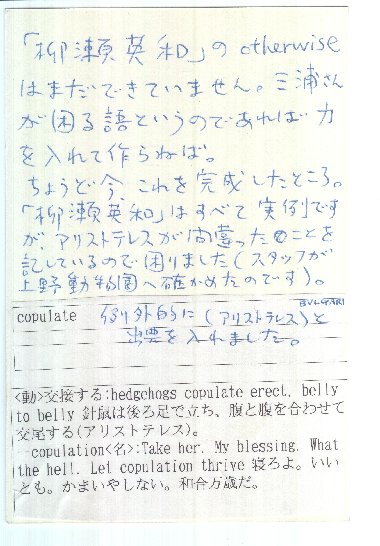 「柳瀬英和」の otherwise
はまだできていません。三浦さん
が困る語というのであれば力
を入れて作らねば。
ちょうど今、これを完成したところ。
「柳瀬英和」はすべて実例です
が、アリストテレスが間違ったことを
記しているので困りました(スタッフが
上野動物園へ確かめたのです)。
copulate 例外的に(アリストテレス)と
出典を入れました。
<動>交接する:hedgehogs copulate erect, belly
to belly 針鼠は後ろ足で立ち、腹と腹を合わせて
交尾する(アリストテレス)。
—copulation<名>:Take her. My blessing. What
the hell. Let copulation thrive 寝ろよ。いい
とも。かまいやしない。和合万歳だ。